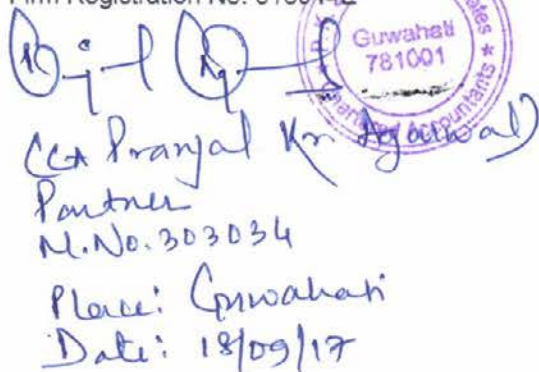 Firm Registration No.
Guwahati
781001
(CA Pranjal Kr Agarwal)
Partner
M.No. 303034
Place: Guwahati
Date: 18/09/17